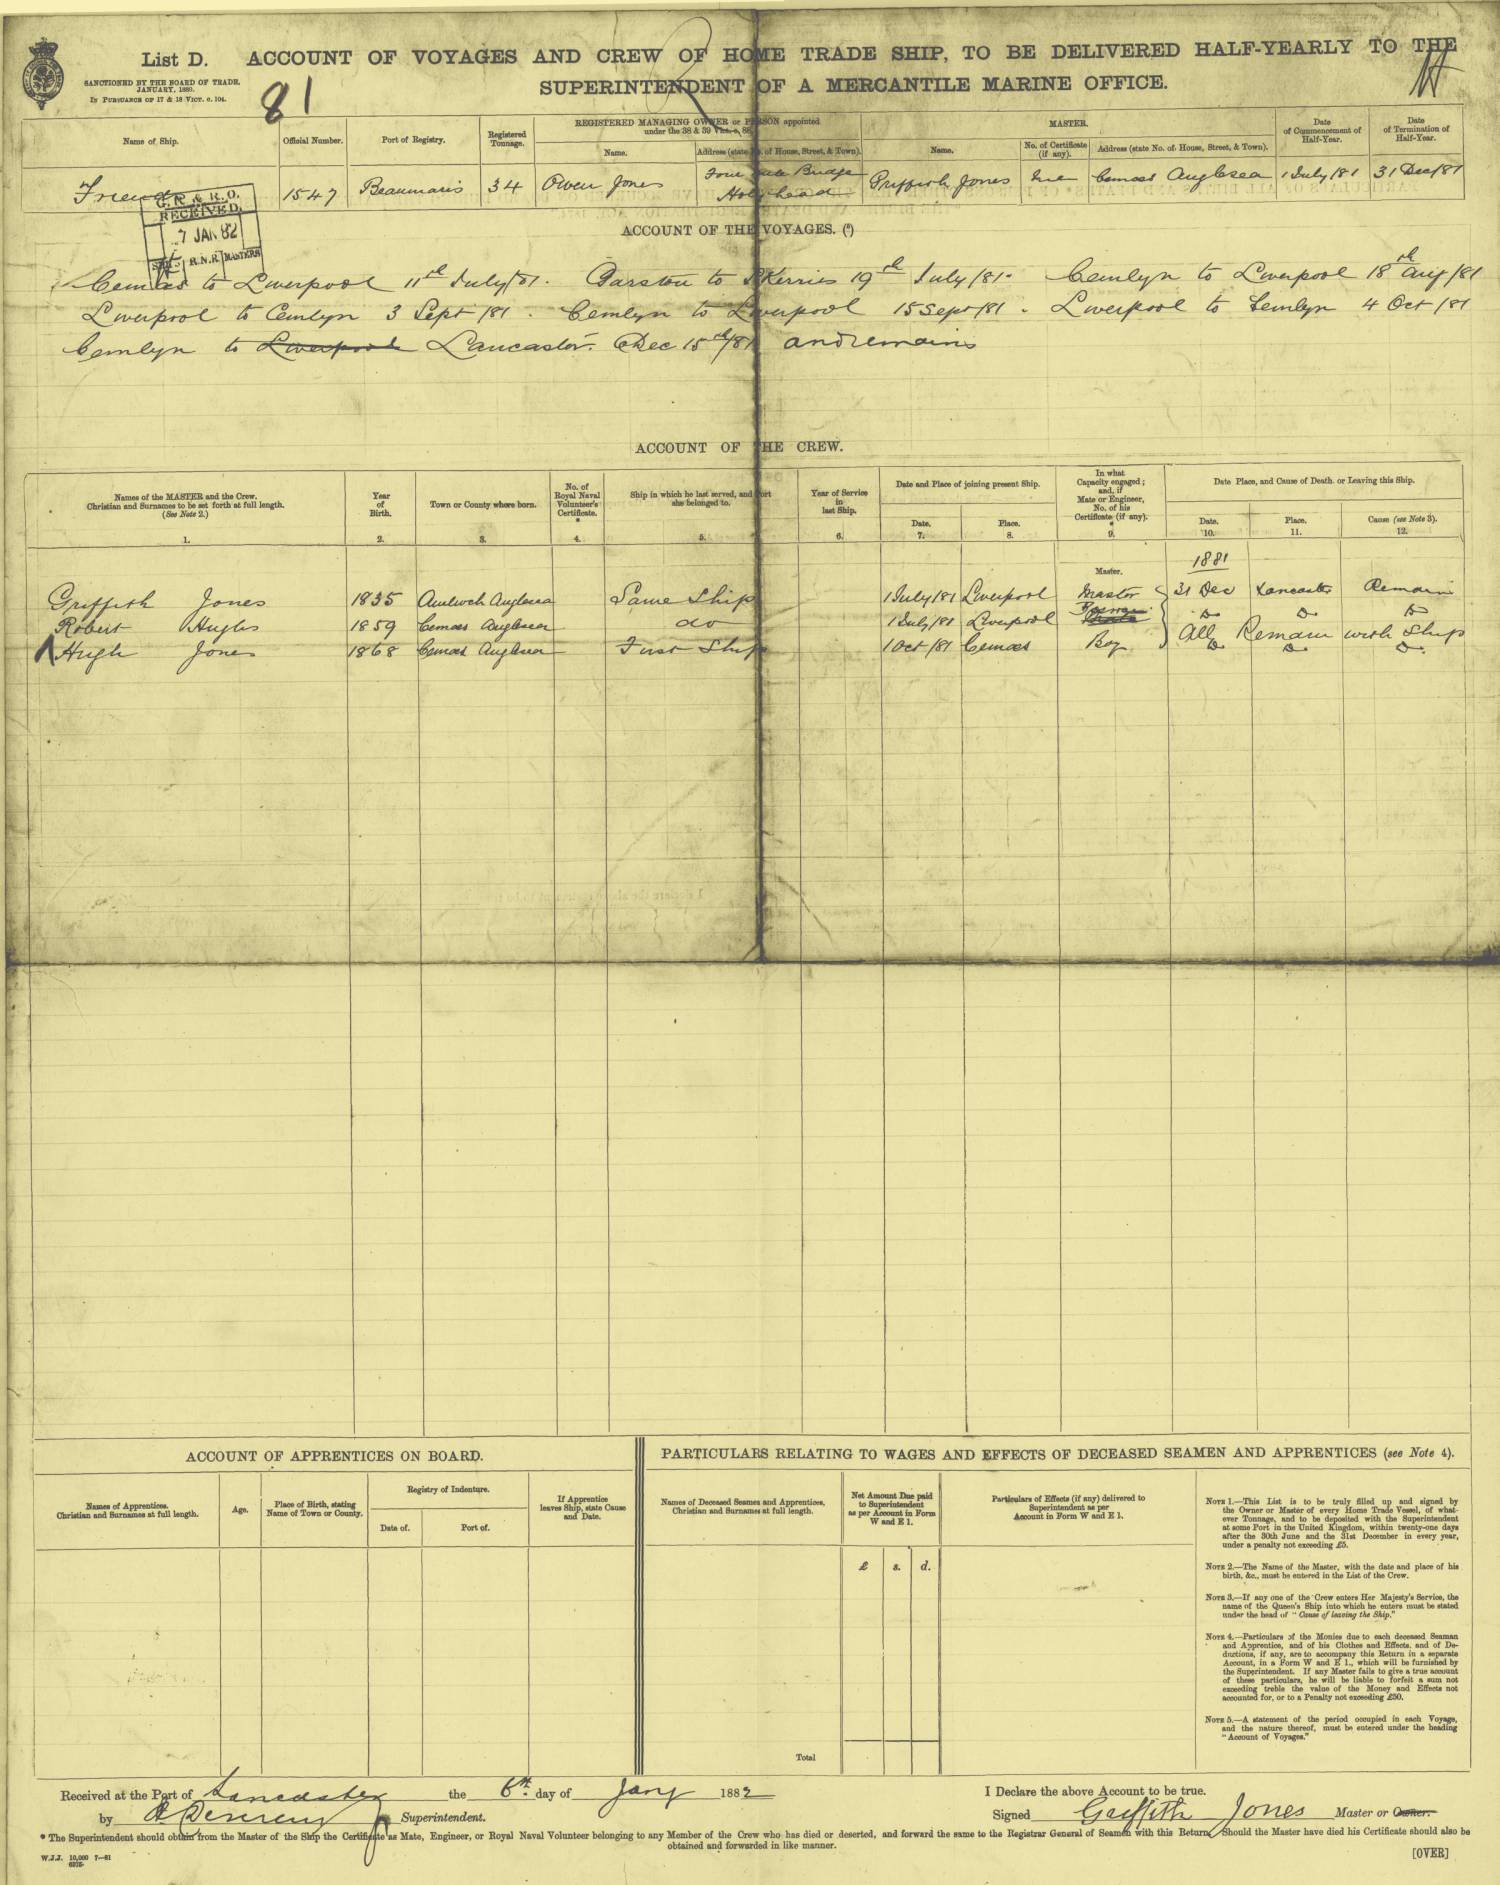 List D. ACCOUNT OF VOYAGES AND CREW OF HOME TRADE SHIP, TO BE DELIVERED HALF-YEARLY TO THE
SUPERINTENDENT OF A MERCANTILE MARINE OFFICE.
SANCTIONED BY THE BOARD OF TRADE,
JANUARY, 1880.
IN PURSUANCE OF 17 & 18 VICT. c. 104.
81
Name of Ship. Official Number. Port of Registry. Registered Tonnage.
REGISTERED MANAGING OWNER or PERSON appointed under the 38 & 39 Vict. c. 88.
Name. Address (state No. of House, Street, & Town).
MASTER.
Name. No. of Certificate (if any). Address (state No. of House, Street, & Town).
Date of Commencement of Half-Year. Date of Termination of Half-Year.
Friends 1547 Beaumaris 34 Owen Jones Bridge Holyhead Griffith Jones Cemaes Anglesea 1 July /81 31 Dec/81
G.R. & R.O.
RECEIVED.
7 JAN 82
R.N.R. MASTERS
ACCOUNT OF THE VOYAGES. (5)
Cemaes to Liverpool 11th July/81. Garston to 19th July/81. Cemlyn to Liverpool 18th Aug/81
Liverpool to Cemlyn 3 Sept /81. Cemlyn to Liverpool 15 Sept/81. Liverpool to Cemlyn 4 Oct /81
Cemlyn to Liverpool Lancaster. Dec 15th/81 and remains
ACCOUNT OF THE CREW.
Names of the MASTER and the Crew. Christian and Surnames to be set forth at full length. (See Note 2.) 1.
Year of Birth. 2.
Town or County where born. 3.
No. of Royal Naval Volunteer's Certificate. * 4.
Ship in which he last served, and Port she belonged to. 5.
Year of Service in last Ship. 6.
Date and Place of joining present Ship.
Date. 7. Place. 8.
In what Capacity engaged; and, if Mate or Engineer, No. of his Certificate (if any). * 9.
Date Place, and Cause of Death, or Leaving this Ship.
Date. 10. Place. 11. Cause (see Note 3). 12.
1881
Master.
Griffith Jones 1835 Amlwch Anglesea Same Ship 1 July/81 Liverpool Master 31 Dec Lancaster Remain
Robert Hughs 1859 Cemaes Anglesea do 1 July/81 Liverpool Do Do Do
All Remain with Ship
Hugh Jones 1868 Cemaes Anglesea First Ship 1 Oct/81 Cemaes Boy Do Do Do
ACCOUNT OF APPRENTICES ON BOARD.
Names of Apprentices. Christian and Surnames at full length.
Age.
Place of Birth, stating Name of Town or County.
Registry of Indenture.
Date of. Port of.
If Apprentice leaves Ship, state Cause and Date.
PARTICULARS RELATING TO WAGES AND EFFECTS OF DECEASED SEAMEN AND APPRENTICES (see Note 4).
Names of Deceased Seamen and Apprentices, Christian and Surnames at full length.
Net Amount Due paid to Superintendent as per Account in Form W and E 1.
£ s. d.
Particulars of Effects (if any) delivered to Superintendent as per Account in Form W and E 1.
Total
NOTE 1.—This List is to be truly filled up and signed by
the Owner or Master of every Home Trade Vessel, of what-
ever Tonnage, and to be deposited with the Superintendent
at some Port in the United Kingdom, within twenty-one days
after the 30th June and the 31st December in every year,
under a penalty not exceeding £5.
NOTE 2.—The Name of the Master, with the date and place of his
birth, &c., must be entered in the List of the Crew.
NOTE 3.—If any one of the Crew enters Her Majesty's Service, the
name of the Queen's Ship into which he enters must be stated
under the head of "Cause of leaving the Ship."
NOTE 4.—Particulars of the Monies due to each deceased Seaman
and Apprentice, and of his Clothes and Effects, and of De-
ductions, if any, are to accompany this Return in a separate
Account, in a Form W and E 1., which will be furnished by
the Superintendent. If any Master fails to give a true account
of these particulars, he will be liable to forfeit a sum not
exceeding treble the value of the Money and Effects not
accounted for, or to a Penalty not exceeding £50.
NOTE 5.—A statement of the period occupied in each Voyage,
and the nature thereof, must be entered under the heading
"Account of Voyages."
Received at the Port of Lancaster the 6th. day of Jany 1882
by Superintendent.
I Declare the above Account to be true.
Signed Griffith Jones Master or Owner.
* The Superintendent should obtain from the Master of the Ship the Certificate as Mate, Engineer, or Royal Naval Volunteer belonging to any Member of the Crew who has died or deserted, and forward the same to the Registrar General of Seamen with this Return. Should the Master have died his Certificate should also be
obtained and forwarded in like manner.
W.J.J. 10,000 7—81
[OVER]